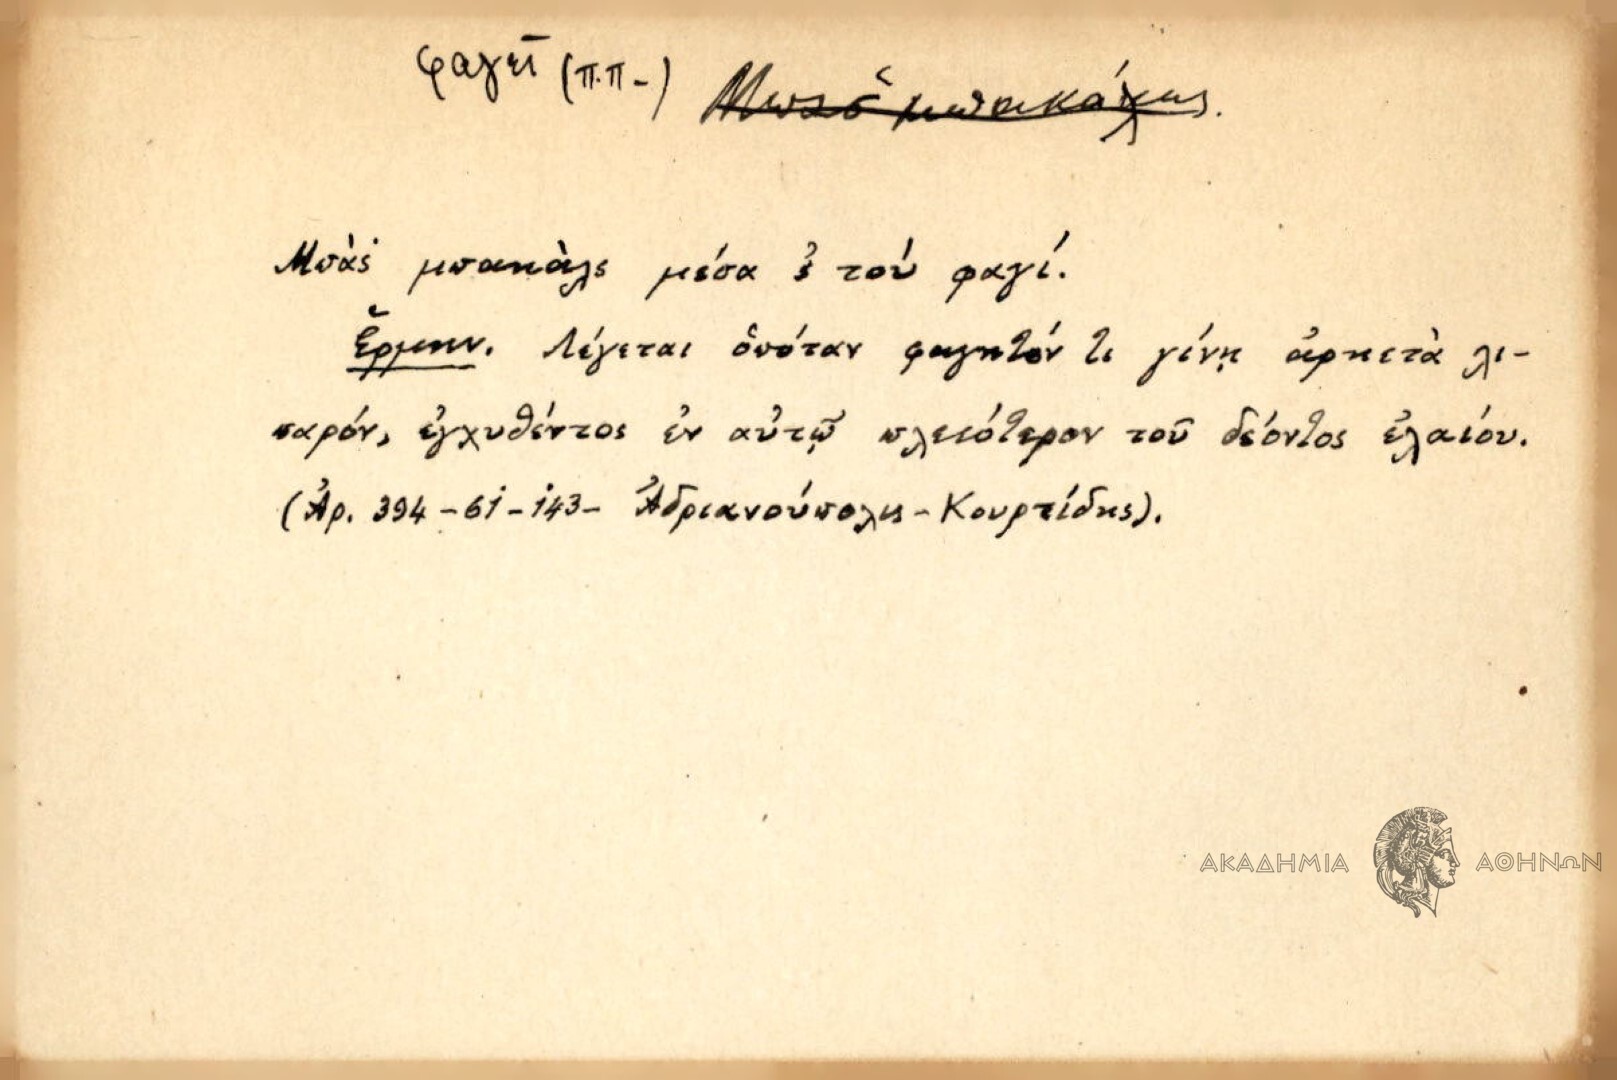 φαγεῖ (π.π-) Μπας ὁ μπακάλης.
Μπάς μπακάλς μέσα 'ς τού φαγί.
Ἑρμην. Λέγεται ὁπόταν φαγητόν τι γίνῃ ἀρκετὰ λι-
παρόν, ἐγχυθέντος ἐν αὐτῷ πλειότερον τοῦ δέοντος ἐλαίου.
(Ἀρ. 394-61-143- Ἀδριανούπολις - Κουρτίδης).
ΑΚΑΔΗΜΙΑ ΑΘΗΝΩΝ